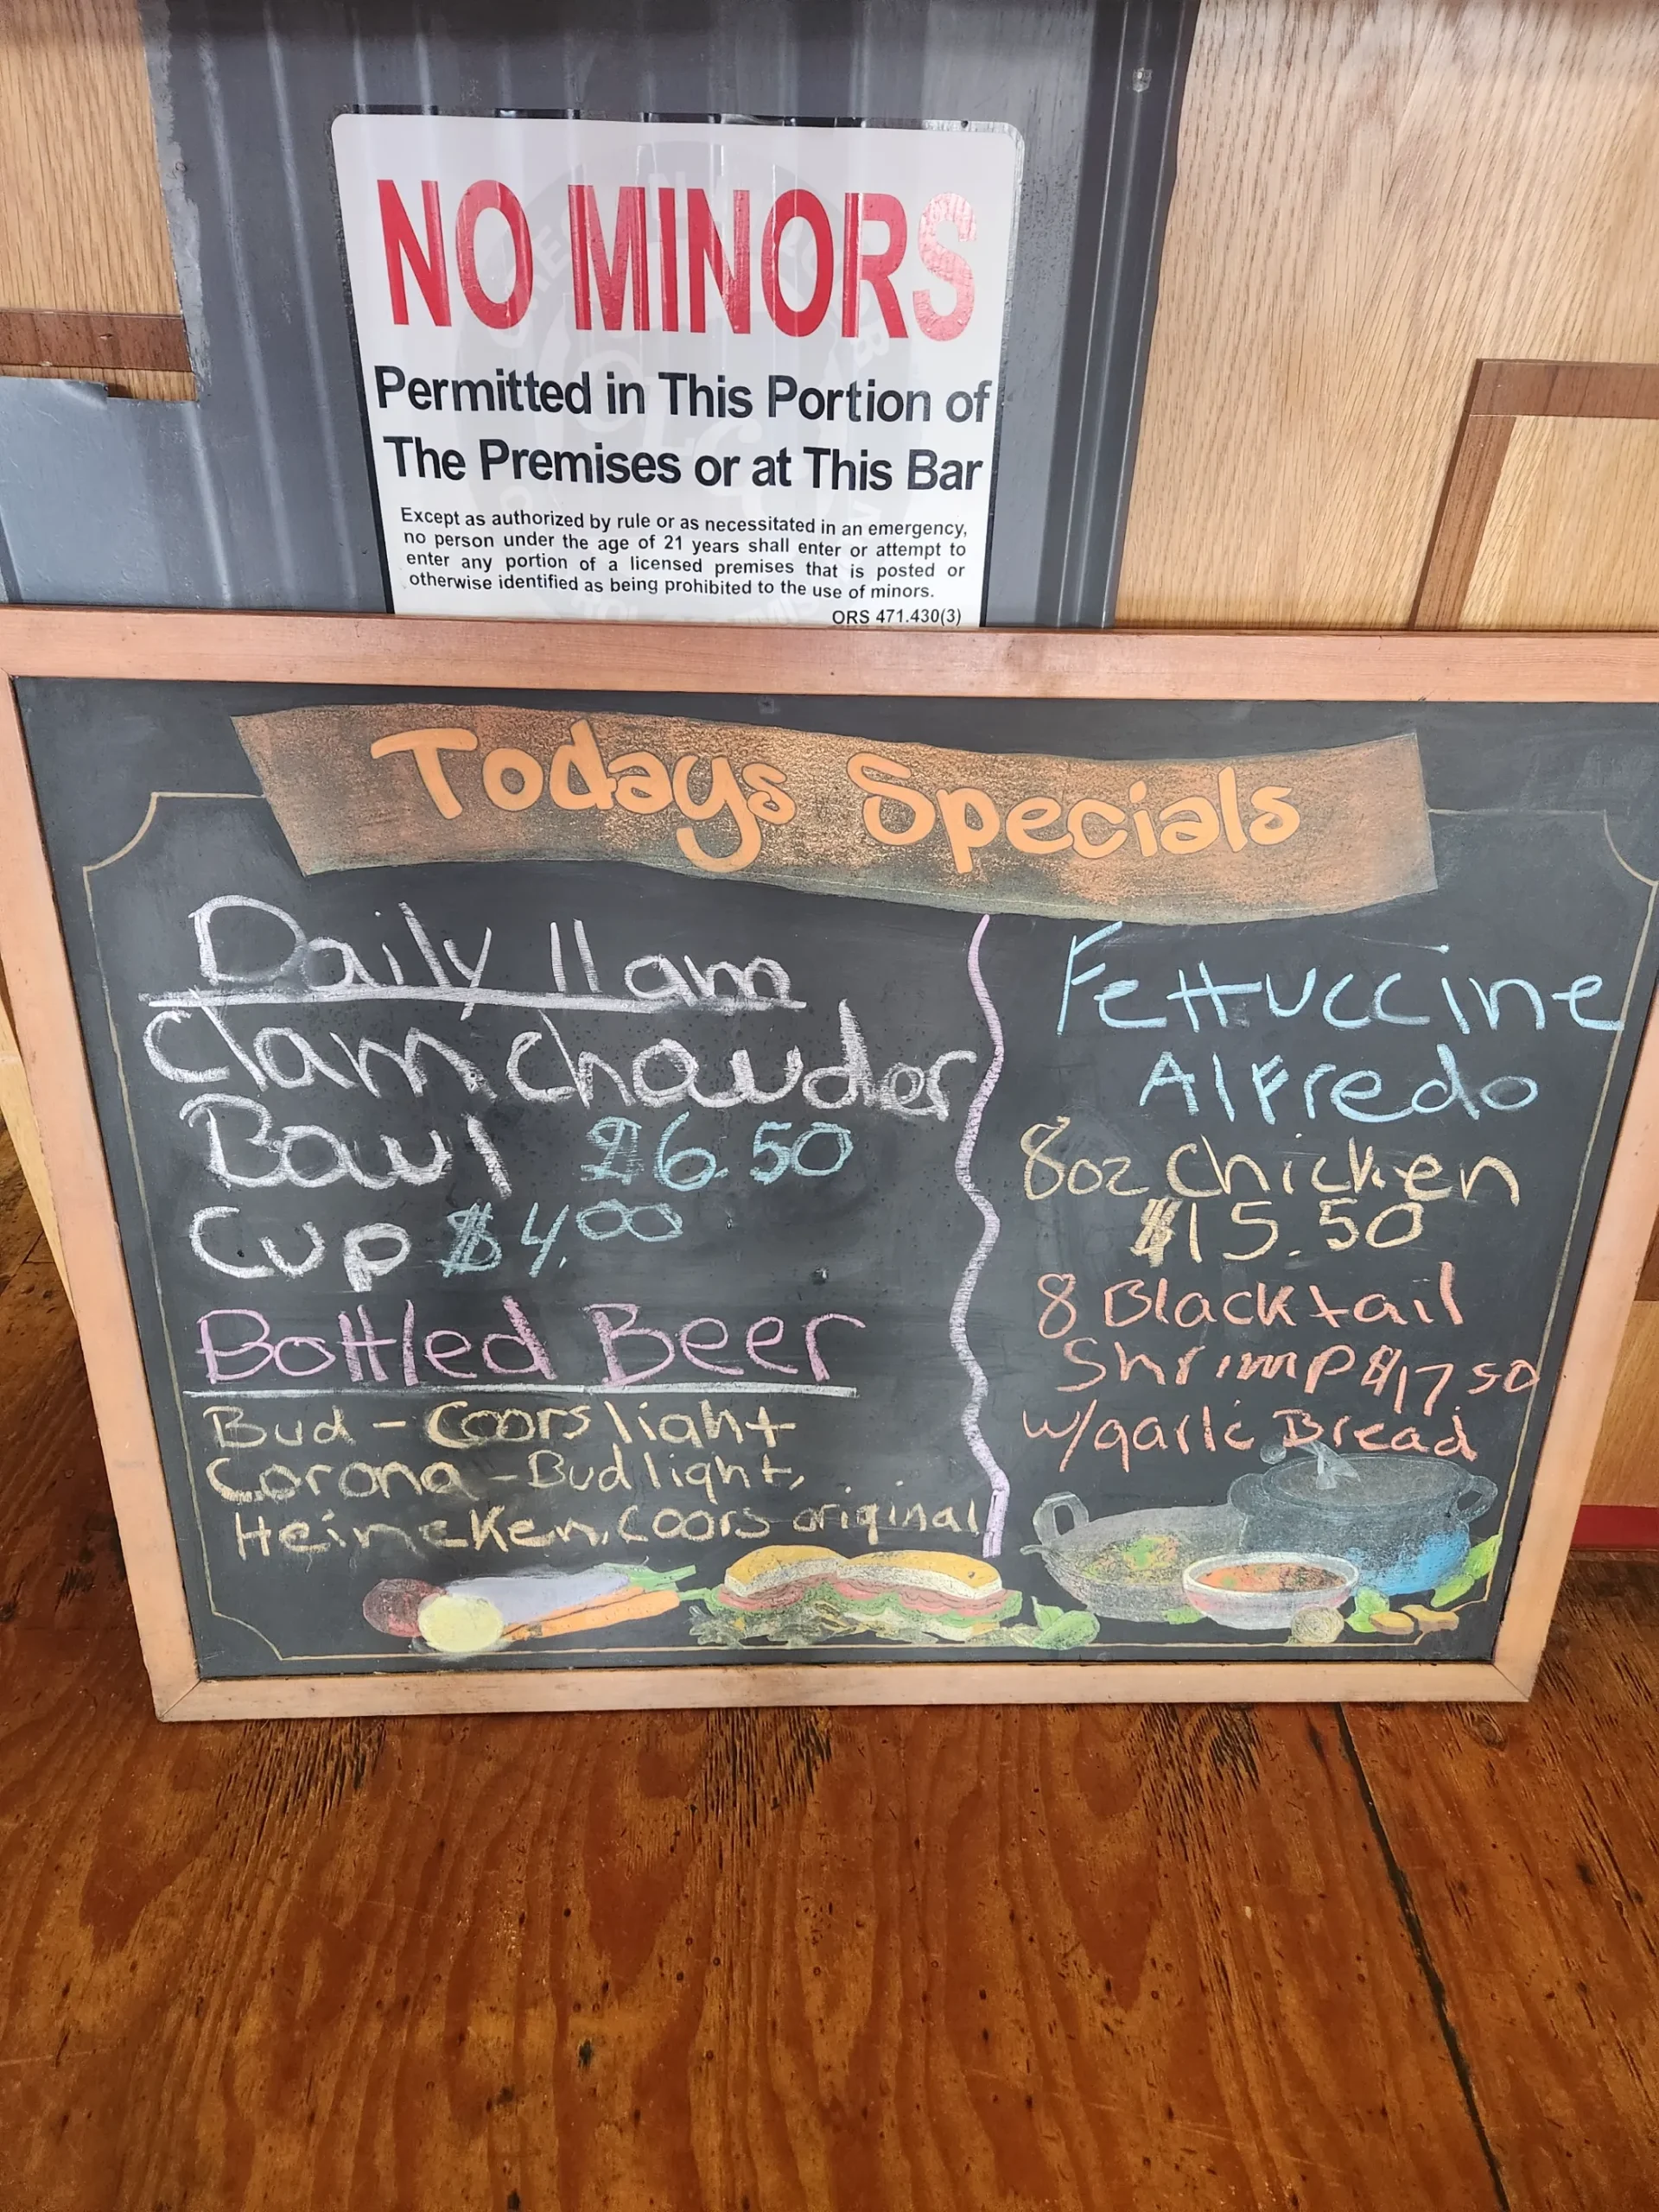 NO MINORS
Permitted in This Portion of
The Premises or at This Bar
Except as authorized by rule or as necessitated in an emergency,
no person under the age of 21 years shall enter or attempt to
enter any portion of a licensed premises that is posted or
otherwise identified as being prohibited to the use of minors.
ORS 471.430(3)
Todays Specials
Daily 11am
Clam chowder
Bowl $6.50
Cup $4.00
Bottled Beer
Bud - Coors light
Corona - Bud light,
Heineken, Coors original
Fettuccine
Alfredo
8oz chicken
$15.50
8 Blacktail
Shrimp $17.50
w/garlic Bread